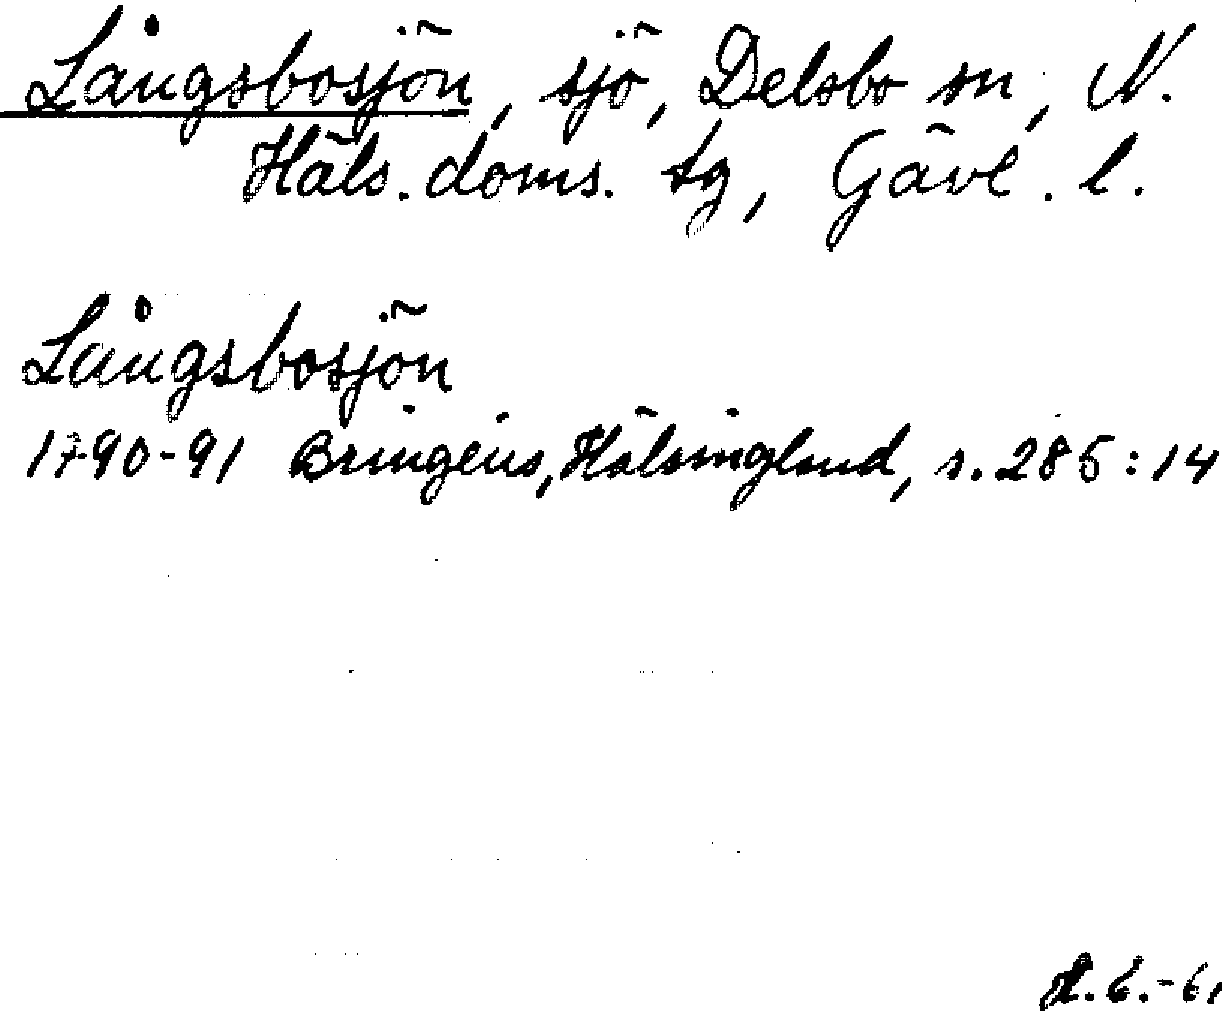 Långsbosjön, sjö, Delsbo sn, N.
Häls. doms. tg, Gävl. l.
Långsbosjön
1790-91 Bringéus, Hälsingland, s. 285:14
H.E.-61